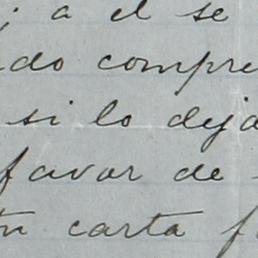 ; a el se
ido compre
si lo deja
favor de
tu carta f